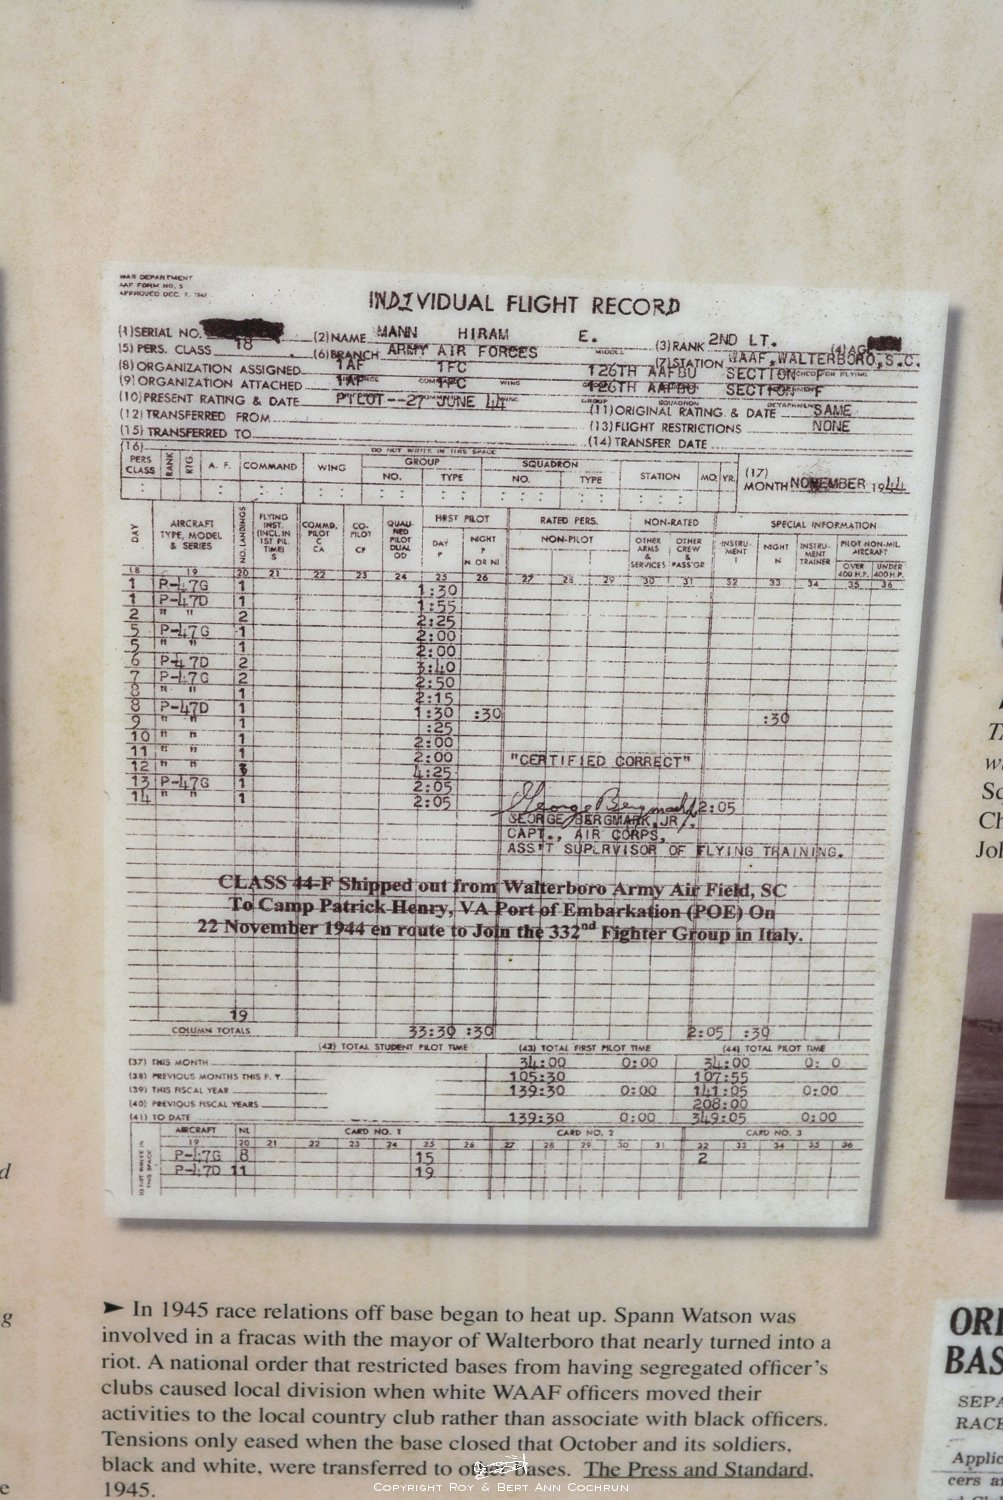 WAR DEPARTMENT
AAF FORM NO. 5
APPROVED DEC. 7, 1942
INDIVIDUAL FLIGHT RECORD
(1) SERIAL NO. (2) NAME MANN HIRAM E. MIDDLE (3) RANK 2ND LT. (4) AGE
(5) PERS. CLASS 18 (6) BRANCH ARMY AIR FORCES (7) STATION WAAF, WALTERBORO, S.C.
(8) ORGANIZATION ASSIGNED 1AF 1FC 126TH AAFBU SECTION F
(9) ORGANIZATION ATTACHED 1AF 1FC 126TH AAFBU SECTION F
(10) PRESENT RATING & DATE PILOT--27 JUNE 44 (11) ORIGINAL RATING & DATE SAME
(12) TRANSFERRED FROM (13) FLIGHT RESTRICTIONS NONE
(15) TRANSFERRED TO (14) TRANSFER DATE
(16) DO NOT WRITE IN THIS SPACE
PERS CLASS RANK RTG. A. F. COMMAND WING GROUP NO. TYPE SQUADRON NO. TYPE STATION MO. YR. (17) MONTH NOVEMBER 1944
DAY AIRCRAFT TYPE, MODEL & SERIES NO. LANDINGS FLYING INST. (INCL. IN 1ST PIL. TIME) S COMMD. PILOT C CA CO-PILOT CP QUALI-FIED PILOT DUAL QD FIRST PILOT DAY P NIGHT P N OR NI RATED PERS. NON-PILOT NON-RATED OTHER ARMS & SERVICES OTHER CREW & PASS'GR SPECIAL INFORMATION INSTRU-MENT I NIGHT N INSTRU-MENT TRAINER PILOT NON-MIL. AIRCRAFT OVER 400 H.P. UNDER 400 H.P.
18 19 20 21 22 23 24 25 26 27 28 29 30 31 32 33 34 35 36
1 P-47G 1 1:30
1 P-47D 1 1:55
2 " " 2 2:25
5 P-47G 1 2:00
5 " " 1 2:00
6 P-47D 2 3:40
7 P-47G 2 2:50
8 " " 1 2:15
8 P-47D 1 1:30 :30 :30
9 " " 1 :25
10 " " 1 2:00
11 " " 1 2:00 "CERTIFIED CORRECT"
12 " " 3 4:25
13 P-47G 1 2:05
14 " " 1 2:05 George Bergmark Jr. 2:05
GEORGE BERGMARK, JR.
CAPT., AIR CORPS,
ASS'T SUPERVISOR OF FLYING TRAINING.
CLASS 44-F Shipped out from Walterboro Army Air Field, SC
To Camp Patrick Henry, VA Port of Embarkation (POE) On
22 November 1944 en route to Join the 332nd Fighter Group in Italy.
19
COLUMN TOTALS 33:30 :30 2:05 :30
(42) TOTAL STUDENT PILOT TIME (43) TOTAL FIRST PILOT TIME (44) TOTAL PILOT TIME
(37) THIS MONTH 34:00 0:00 34:00 0: 0
(38) PREVIOUS MONTHS THIS F. Y. 105:30 107:55
(39) THIS FISCAL YEAR 139:30 0:00 141:05 0:00
(40) PREVIOUS FISCAL YEARS 208:00
(41) TO DATE 139:30 0:00 349:05 0:00
AIRCRAFT NL CARD NO. 1 CARD NO. 2 CARD NO. 3
19 20 21 22 23 24 25 26 27 28 29 30 31 32 33 34 35 36
P-47G 8 15 2
P-47D 11 19
DO NOT WRITE IN THIS SPACE
➤ In 1945 race relations off base began to heat up. Spann Watson was
involved in a fracas with the mayor of Walterboro that nearly turned into a
riot. A national order that restricted bases from having segregated officer's
clubs caused local division when white WAAF officers moved their
activities to the local country club rather than associate with black officers.
Tensions only eased when the base closed that October and its soldiers,
black and white, were transferred to other bases. The Press and Standard,
1945.
ORI
BAS
SEPA
RACE
Applic
cers a
Copyright Roy & Bert Ann Cochrun